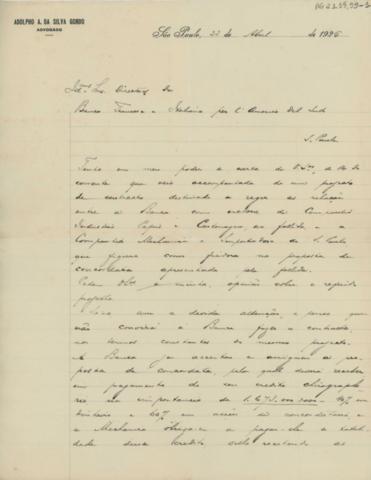 ADOLPHO A. DA SILVA GORDO
ADVOGADO
São Paulo, 22 de Abril de 1926
Snrs. Directores do
Banco Francese e Italiano per l'America del Sud
S. Paulo
Tenho em meu poder a carta de V.Sas, de
corrente que veio acompanhada de um projecto
de contracto destinado a regular as relações
entre o Banco, como credor da Companhia
Industrial Papeis e Cartonagem, ora fallida e a
Companhia Mechanica e Importadora de S. Paulo
que figura como fiadora na proposta de
concordata apresentada pela fallida.
Pedem V.Sas a minha opinião sobre o referido
projecto.
com a devida attenção, e penso que
não convirá ao Banco fazer o contracto,
nos termos constantes do mesmo projecto.
O Banco já acceitou e assignou a pro-
posta de concordata, pela qual deverá receber
em pagamento de seu credito chirographa-
rio na importancia de 40% em
dinheiro e 60% em acções da concordataria e
a Mechanica obrigou-se a pagar-lhe a totali-
dade desse credito